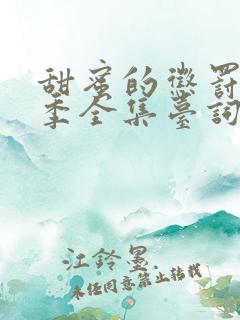 甜蜜的懲罰
季全集臺詞
江鈴墨.
未经同意禁止转载